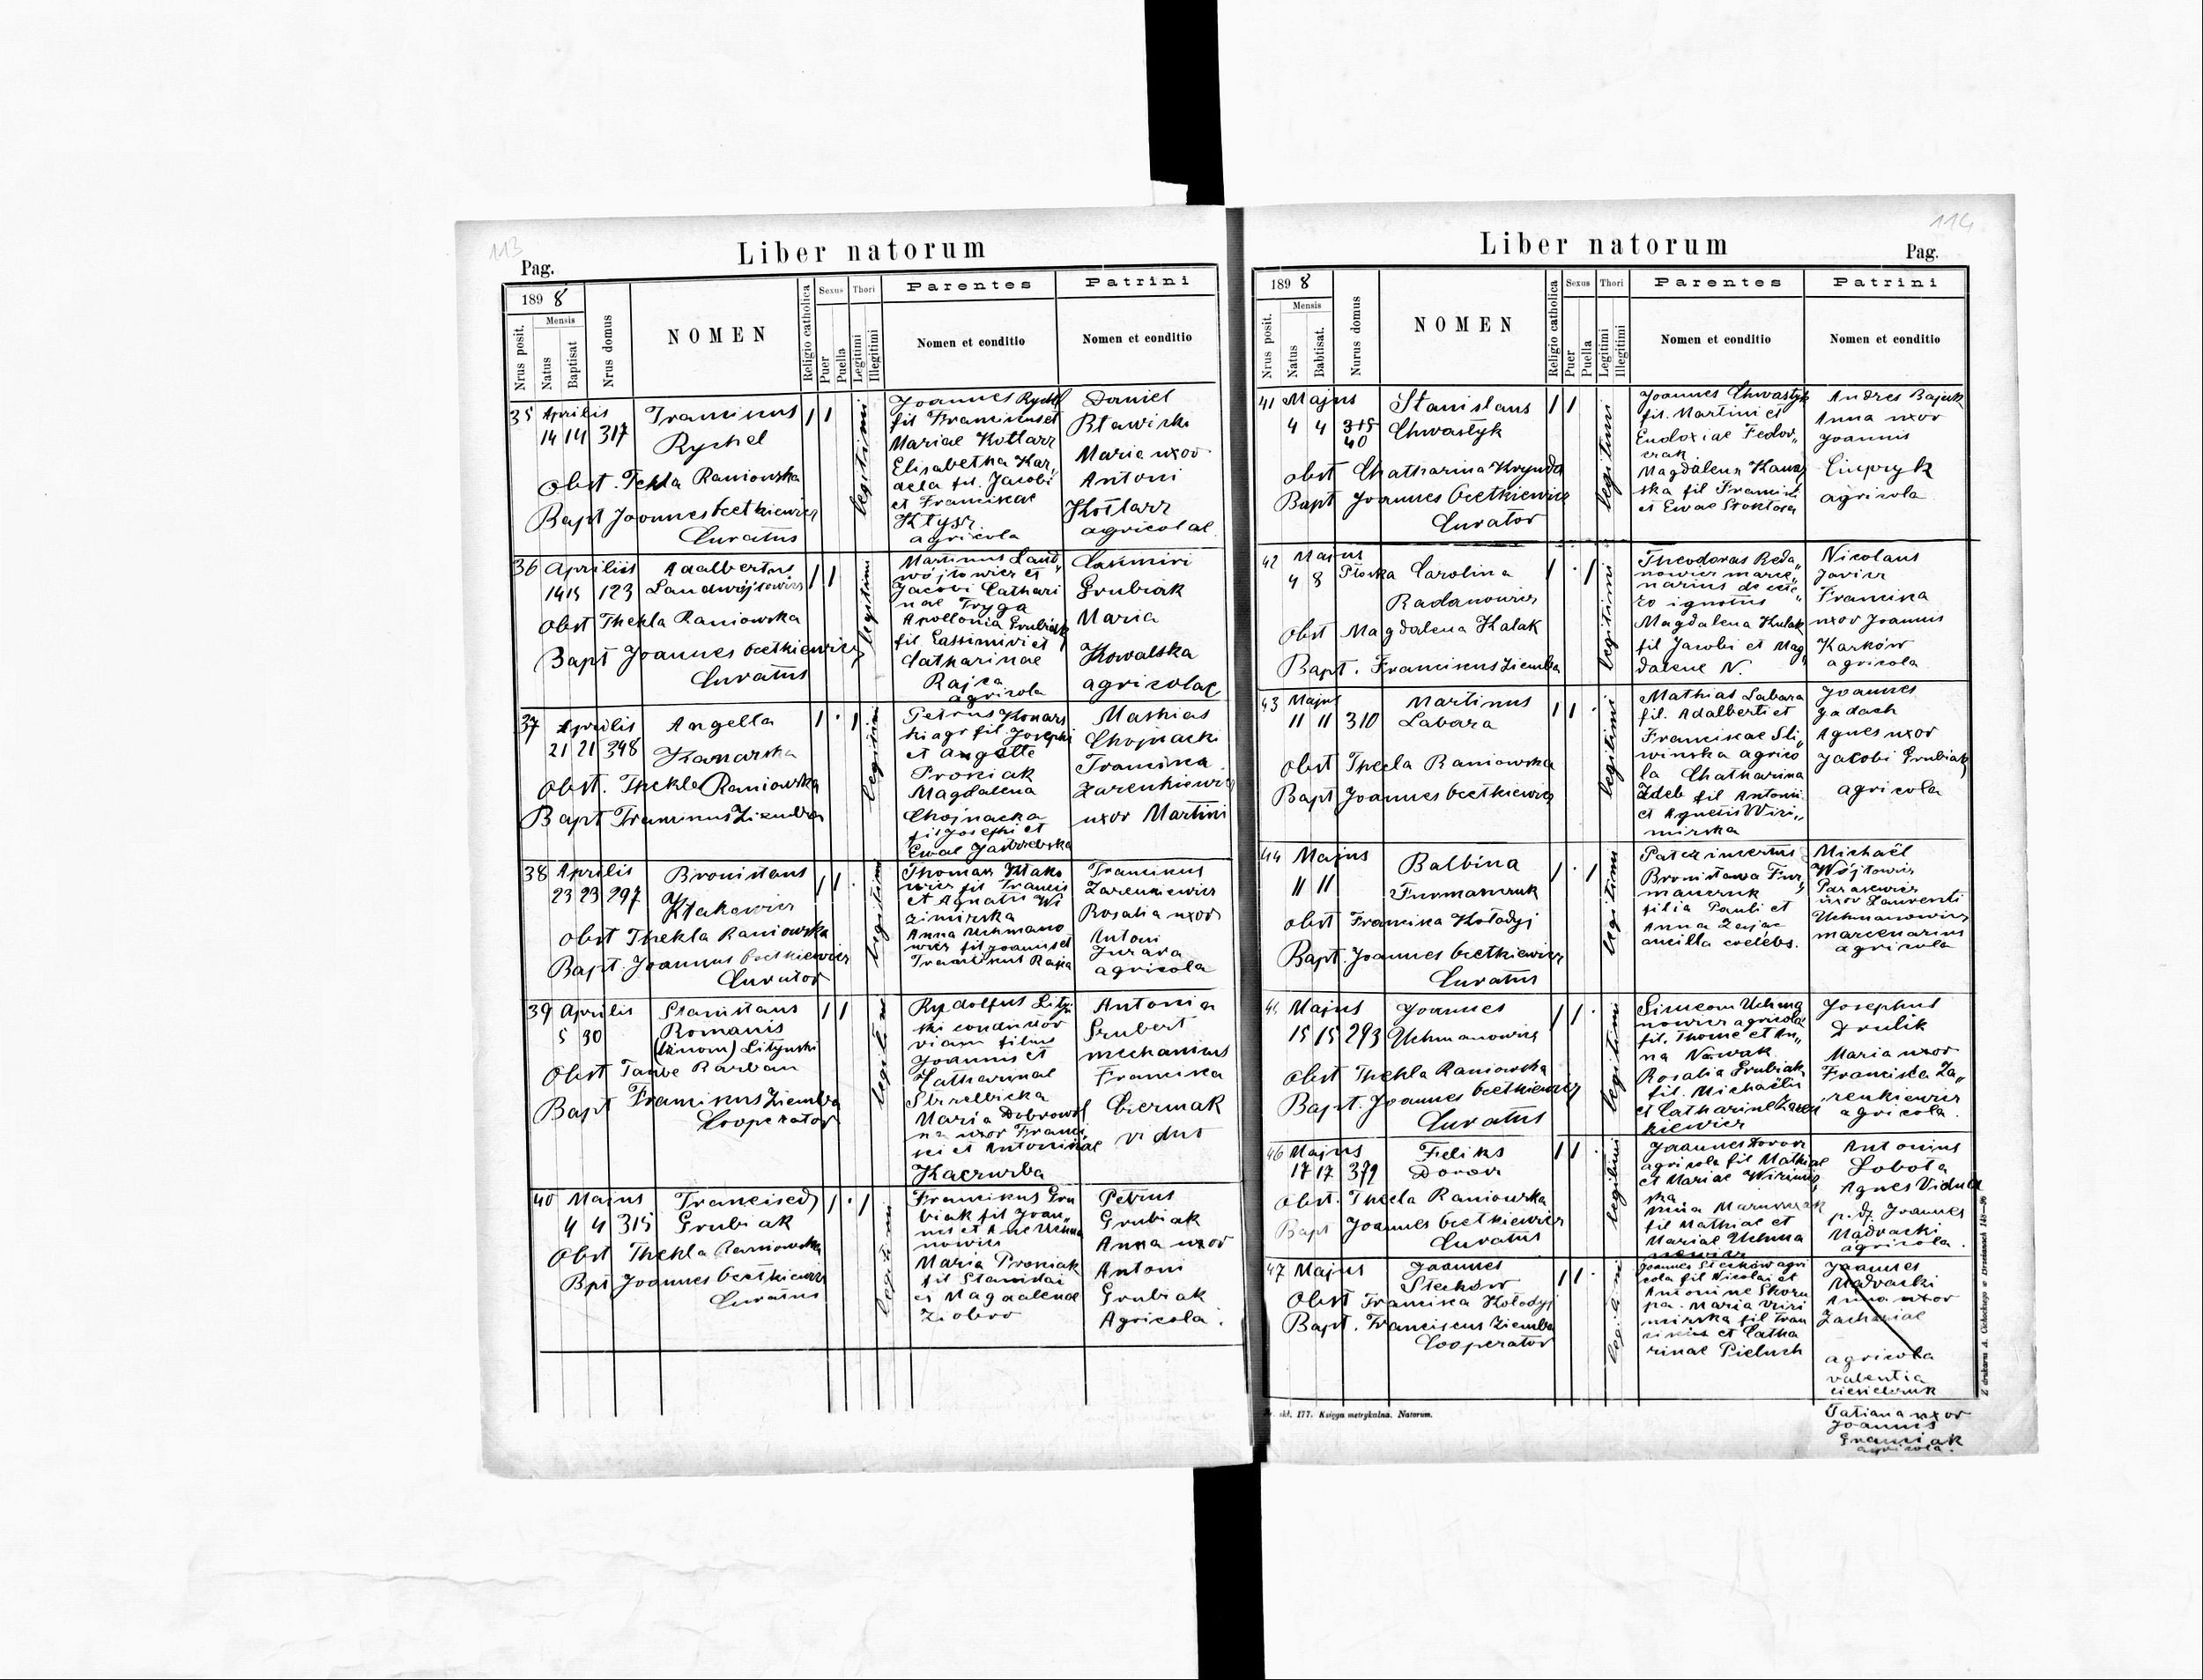 113
Liber natorum
Pag.
1898
Mensis
Nrus posit.
Natus
Baptisat
Nrus domus
NOMEN
Religio catholica
Sexus
Puer
Puella
Thori
Legitimi
Illegitimi
Parentes
Nomen et conditio
Patrini
Nomen et conditio
35 Aprilis
14 14 317
Franciscus
Rychel
Obst. Tekla Raniowska
Bapt Joannes
Curatus
legitimi
Joannes Rychel
fil Franciscus et
Mariae Kotlarz
Elisabetha Kar,,
dela fil. Jacobi
et Franciscae
Kłysz
agricola
Daniel
Maria uxor
Antoni
Kotlarz
agricolae
36 Aprilis
14 15 123
Adalbertus
Landwójtowicz
Obst Thekla Raniowska
Bapt Joannes
Curatus
legitimi
Martinus Land,,
wójtowicz et
Jacobi Cathari
nae Fryga
Apollonia Grubiak
fil Cassimiri et
Catharinae
Rajca
agricola
Casimiri
Grubiak
Maria
Kowalska
agricolae
37 Aprilis
21 21 348
Angella
Konarska
Obst. Thekla Raniowska
Bapt Franciscus Ziemba
legitimi
Petrus Konars
ki agr fil. Josephi
et Angelle
Proniak
Magdalena
Chojnacka
fil Josephi et
Ewae Jastrzebska
Mathias
Chojnacki
Francisca
Zarenkiewicz
uxor Martini
38 Aprilis
23 23 297
Bronislaus
Kłakowicz
Obst Thekla Raniowska
Bapt Joannes
Curator
legitimi
Thomas Kłako
wicz fil Francis
et Agnatis Wi
zimirska
Anna Uchmano
wicz fil Joannis et
Franciscus Rajca
Franciscus
Zarenkiewicz
Rosalia uxor
Antoni
Jurara
agricola
39 Aprilis
5 30
Stanislaus
Romanis
(binom) Lityński
Obst Taube Barban
Bapt Franciscus Ziemba
Cooperator
legitimi
Rudolfus Lityń
ski conductor
viam filius
Joannis et
Catharinae
Strzelbicka
Maria Dobrowol
na uxor Franci,,
sci et Antoninae
Kaczurba
Antonia
Grubert
mechanicus
Francisca
Ciermak
vidus
40 Majus
4 4 315
Grubiak
Obst Thekla Raniowska
Bpt Joannes
Curatus
legitimi
Franciscus Gru
biak fil Joan,,
nis et Anne Uchma
nowicz
Maria Proniak
fil Stanislai
et Magdalenae
Ziobro
Petrus
Grubiak
Anna uxor
Antoni
Grubiak
Agricola.
114
Liber natorum
Pag.
1898
Mensis
Nrus posit.
Natus
Babtisat.
Nurus domus
NOMEN
Religio catholica
Sexus
Puer
Puella
Thori
Legitimi
Illegitimi
Parentes
Nomen et conditio
Patrini
Nomen et conditio
41 Majus
4 4
40
Stanislaus
Chwastyk
Obst Chatharina Krynda
Bapt Joannes
Curator
legitimi
Joannes Chwastyk
fil. Martini et
Eudoxiae Fedor,,
czak
et Ewae
Andres Bajuk
Anna uxor
Joannis
Ciupryk
agricola
42 Majus
4 8 Płoska
Carolina
Radanowicz
Obst Magdalena Kulak
Bapt. Franciscus Ziemba
legitimi
ignotus
Magdalena Kulak
fil Jacobi et Mag,,
dalene N.
Nicolaus
Francisca
uxor Joannis
Karków
agricola
43 Majus
11 11 310
Martinus
Labara
Obst Thecla Raniowska
Bapt Joannes
legitimi
Mathias Labara
fil. Adalberti et
Franciscae Sli,,
winska agrico
la Chatharina
Zdeb fil Antoni
et Agnetis Wizi,,
mirska
Joannes
Jadach
Agnes uxor
Jacobi Grubiak
agricola
44 Majus
11 11
Balbina
Furmanczuk
Obst Francisca Kołodyj
Bapt. Joannes
Curatus
legitimi
Pater incertus
Bronisława Fur,,
manczuk
filia Pauli et
Anna Zając
ancilla coelebs.
Michaël
Wójtowicz
Parascewia
uxor Laurenti
Uchmanowicz
marcenarius
agricola
45 Majus
15 15 293
Joannes
Uchmanowicz
Obst Thekla Raniowska
Bapt. Joannes
Curatus
legitimi
Simeom Uchma
nowicz agricola
fil. Thome et An,,
na Nowak
Rosalia Grubiak
fil. Michaëlis
et Catharine Zaren
kiewicz
Josephus
Drulik
Maria uxor
Franciska Za,,
renkiewicz
agricola.
46 Majus
17 17 379
Feliks
Dorosz
Obst. Thecla Raniowska
Bapt Joannes
Curatus
legitimi
Joannes Dorosz
agricola fil Mathiae
et Mariae Wizimir
ska
fil Mathiae et
Mariae Uchma
nowicz
Antonius
Sobota
Agnes Vidua
p. df. Joannes
Madracki
agricola.
47 Majus
Joannes
Steckow
Obst Francisca Kołodyj
Bapt. Franciscus Ziemba
Cooperator
Joannes Steckow agri
cola fil Nicolai et
Antonine Skoru
pa. Maria Wizi
mirska fil Fran
cisci et Catha
rinae Pieluch
Joannes
Madracki
Anna uxor
Zachariae
agricola
Valentia
Tatiana uxor
Joannis
agricola.
skł. 177. Księga metrykalna. Natorum.